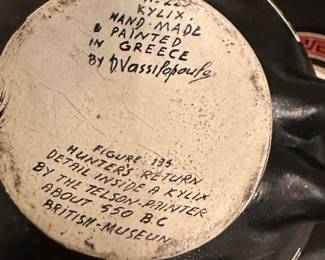 KYLIX.
HAND-MADE
& PAINTED
IN GREECE
BY DVassilopoulos
FIGURE 135
HUNTER'S RETURN
DETAIL INSIDE A KYLIX
BY THE TELSON-PAINTER
ABOUT 550 B C
BRITISH-MUSEUM